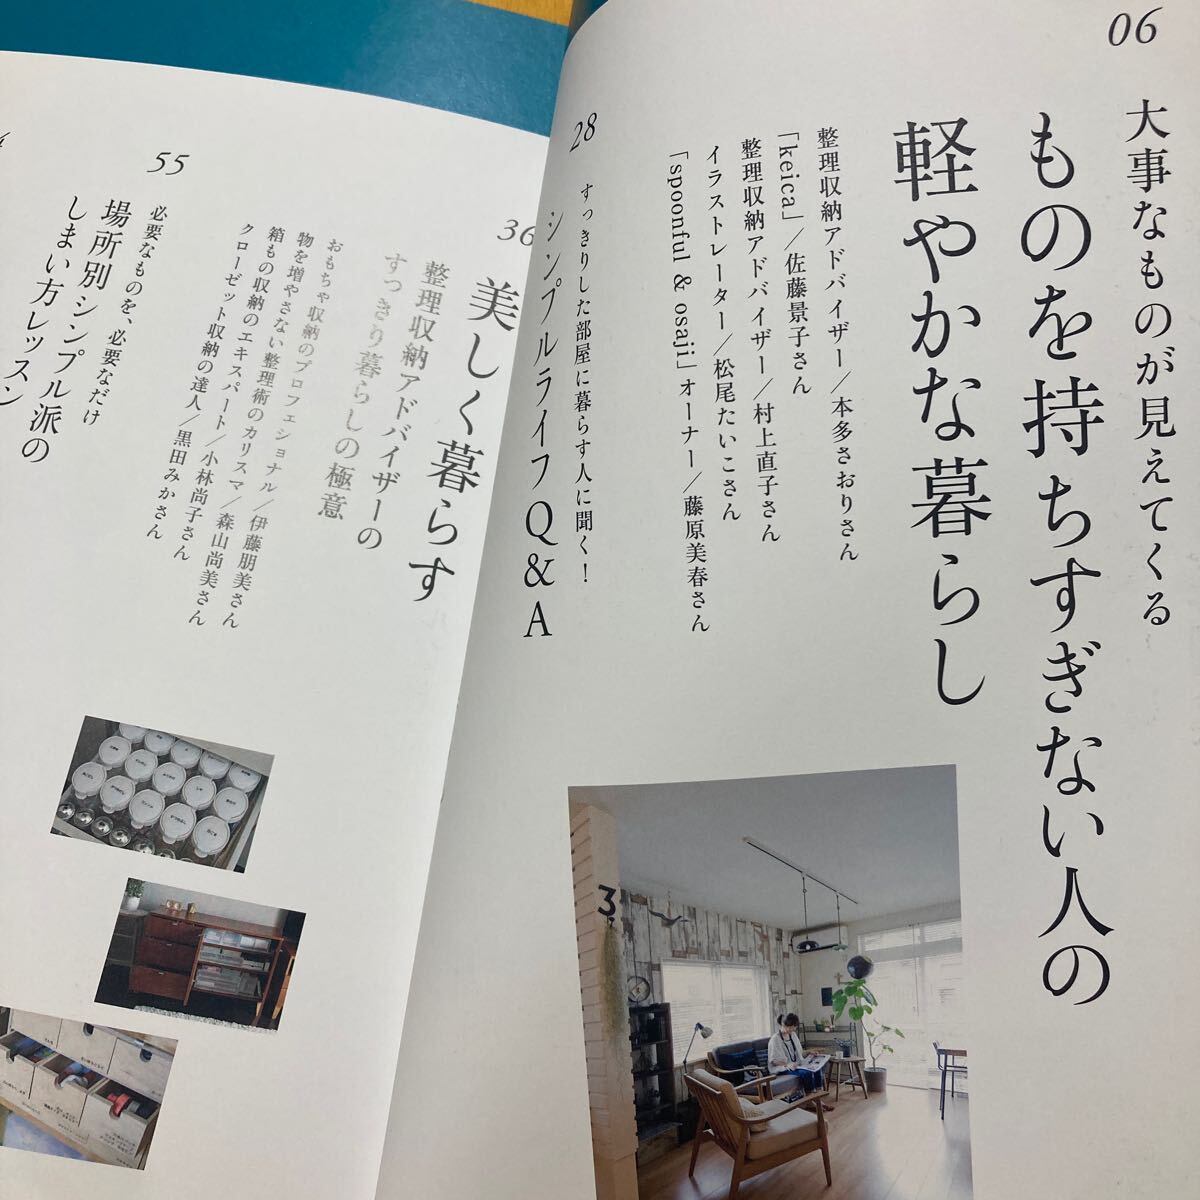 06
大事なものが見えてくる
ものを持ちすぎない人の
軽やかな暮らし
整理収納アドバイザー／本多さおりさん
「keica」／佐藤景子さん
整理収納アドバイザー／村上直子さん
イラストレーター／松尾たいこさん
「spoonful & osaji」オーナー／藤原美春さん
28
すっきりした部屋に暮らす人に聞く！
シンプルライフQ&A
36
美しく暮らす
整理収納アドバイザーの
すっきり暮らしの極意
おもちゃ収納のプロフェショナル／伊藤朋美さん
物を増やさない整理術のカリスマ／森山尚美さん
箱もの収納のエキスパート／小林尚子さん
クローゼット収納の達人／黒田みかさん
55
必要なものを、必要なだけ
場所別シンプル派の
しまい方レッスン